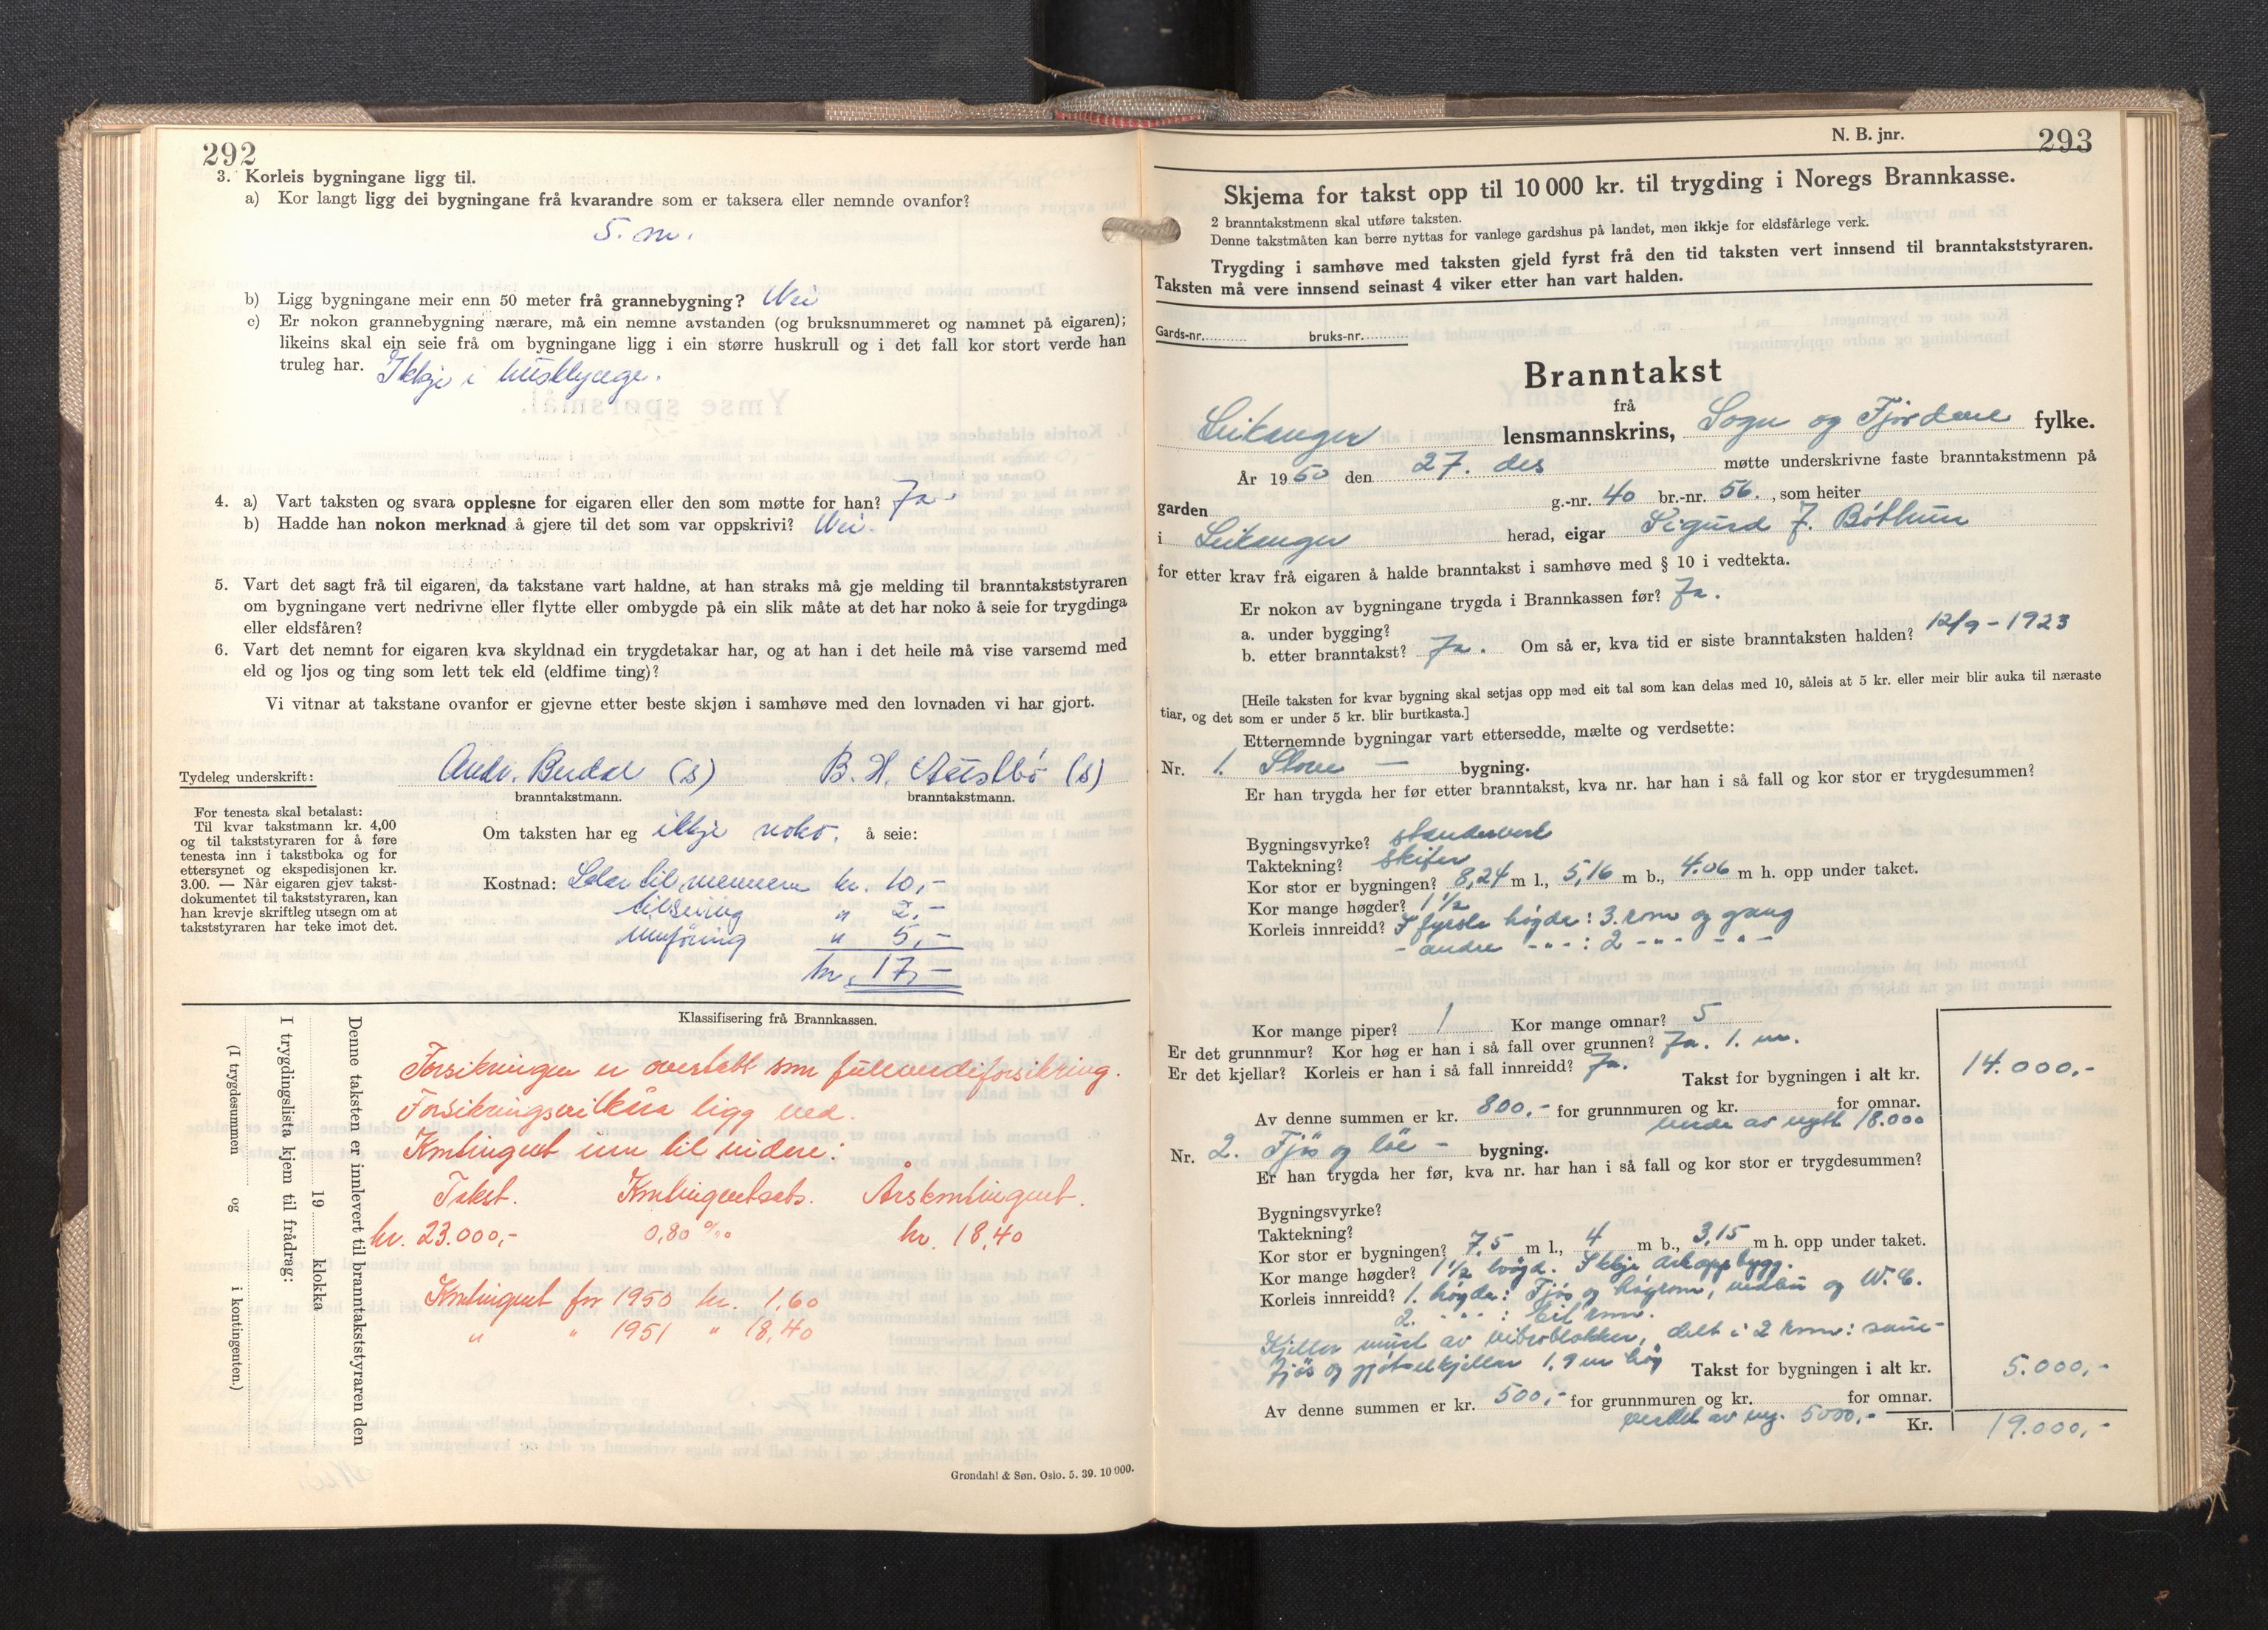 292
3. Korleis bygningane ligg til.
a) Kor langt ligg dei bygningane frå kvarandre som er taksera eller nemnde ovanfor?
5. m.
b) Ligg bygningane meir enn 50 meter frå grannebygning? Nei
c) Er nokon grannebygning nærare, må ein nemne avstanden (og bruksnummeret og namnet på eigaren);
likeins skal ein seie frå om bygningane ligg i ein større huskrull og i det fall kor stort verde han
truleg har. Ikkje i husklynge.
4. a) Vart taksten og svara opplesne for eigaren eller den som møtte for han? Ja.
b) Hadde han nokon merknad å gjere til det som var oppskrivi? Nei.
5. Vart det sagt frå til eigaren, da takstane vart haldne, at han straks må gje melding til branntakststyraren
om bygningane vert nedrivne eller flytte eller ombygde på ein slik måte at det har noko å seie for trygdinga
eller eldsfåren?
6. Vart det nemnt for eigaren kva skyldnad ein trygdetakar har, og at han i det heile må vise varsemd med
eld og ljos og ting som lett tek eld (eldfime ting)?
Vi vitnar at takstane ovanfor er gjevne etter beste skjøn i samhøve med den lovnaden vi har gjort.
Tydeleg underskrift: Andr. Berdal (s) B. H. Austbø (s)
branntakstmann. branntakstmann.
For tenesta skal betalast:
Til kvar takstmann kr. 4,00
og til takststyraren for å føre
tenesta inn i takstboka og for
ettersynet og ekspedisjonen kr.
3.00. — Når eigaren gjev takst-
dokumentet til takststyraren, kan
han krevje skriftleg utsegn om at
takststyraren har teke imot det.
Om taksten har eg ikkje noko. å seie:
Kostnad: til mennene kr. 10,-
" 2,-
Innføring " 5,-
kr. 17,-
Klassifisering frå Brannkassen.
Forsikringen er overtatt som fullverdiforsikring.
Forsikringsvilkåra ligg ved.
Kontingent inn til vidare:
Takst. Kontingentsats. Årskontingent.
kr. 23.000,- 0,80 ‰ kr. 18,40
Kontingent for 1950 kr. 1,60
" " 1951 " 18,40
Denne taksten er innlevert til branntakststyraren den
19 klokka
I trygdingslista kjem til frådrag:
(I trygdesummen og i kontingenten.)
Grøndahl & Søn. Oslo. 5. 39. 10 000.
N. B. jnr. 293
Skjema for takst opp til 10 000 kr. til trygding i Noregs Brannkasse.
2 branntakstmenn skal utføre taksten.
Denne takstmåten kan berre nyttas for vanlege gardshus på landet, men ikkje for eldsfårlege verk.
Trygding i samhøve med taksten gjeld fyrst frå den tid taksten vert innsend til branntakststyraren.
Taksten må vere innsend seinast 4 viker etter han vart halden.
Gards-nr. bruks-nr.
Branntakst
frå
Leikanger lensmannskrins, Sogn og Fjordane fylke.
År 1950 den 27. des møtte underskrivne faste branntakstmenn på
garden g.-nr. 40 br.-nr. 56. , som heiter
i Leikanger herad, eigar Sigurd J. Bøthun
for etter krav frå eigaren å halde branntakst i samhøve med § 10 i vedtekta.
Er nokon av bygningane trygda i Brannkassen før? Ja.
a. under bygging?
b. etter branntakst? Ja. Om så er, kva tid er siste branntaksten halden? 12/9-1923
[Heile taksten for kvar bygning skal setjas opp med eit tal som kan delas med 10, såleis at 5 kr. eller meir blir auka til næraste
tiar, og det som er under 5 kr. blir burtkasta.]
Etternemnde bygningar vart ettersedde, mælte og verdsette:
Nr. 1. Stove — bygning.
Er han trygda her før etter branntakst, kva nr. har han i så fall og kor stor er trygdesummen?
Bygningsvyrke? standerverk
Taktekning? skifer
Kor stor er bygningen? 8,24 m l., 5,16 m b., 4.06 m h. opp under taket.
Kor mange høgder? 1 1/2
Korleis innreidd? I fyrste høgda: 3. rom og gang
- andre -"-: 2 -"- -"-
Kor mange piper? 1 Kor mange omnar? 5
Er det grunnmur? Kor høg er han i så fall over grunnen? Ja. 1. m.
Er det kjellar? Korleis er han i så fall innreidd? Ja.
Takst for bygningen i alt kr. 14.000,-
Av denne summen er kr. 800,- for grunnmuren og kr. for omnar.
verde av nytt 18.000
Nr. 2. Fjøs og løe - bygning.
Er han trygda her før, kva nr. har han i så fall og kor stor er trygdesummen?
Bygningsvyrke?
Taktekning?
Kor stor er bygningen? 7,5 m l., 4 m b., 3,15 m h. opp under taket.
Kor mange høgder? 1 1/2 høgd. Ikkje arkoppbygg.
Korleis innreidd? 1. høgda: Fjøs og høyrom, vedbu og W.C.
2. -"- : Eit rom.
Kjellar murt av vibroblokker, delt i 2 rom: saue-
fjøs og gjødselkjellar 1,9 m høg
Takst for bygningen i alt kr. 5.000,-
Av denne summen er kr. 500,- for grunnmuren og kr. for omnar.
verdet av ny. 5000,-
Kr. 19.000,-